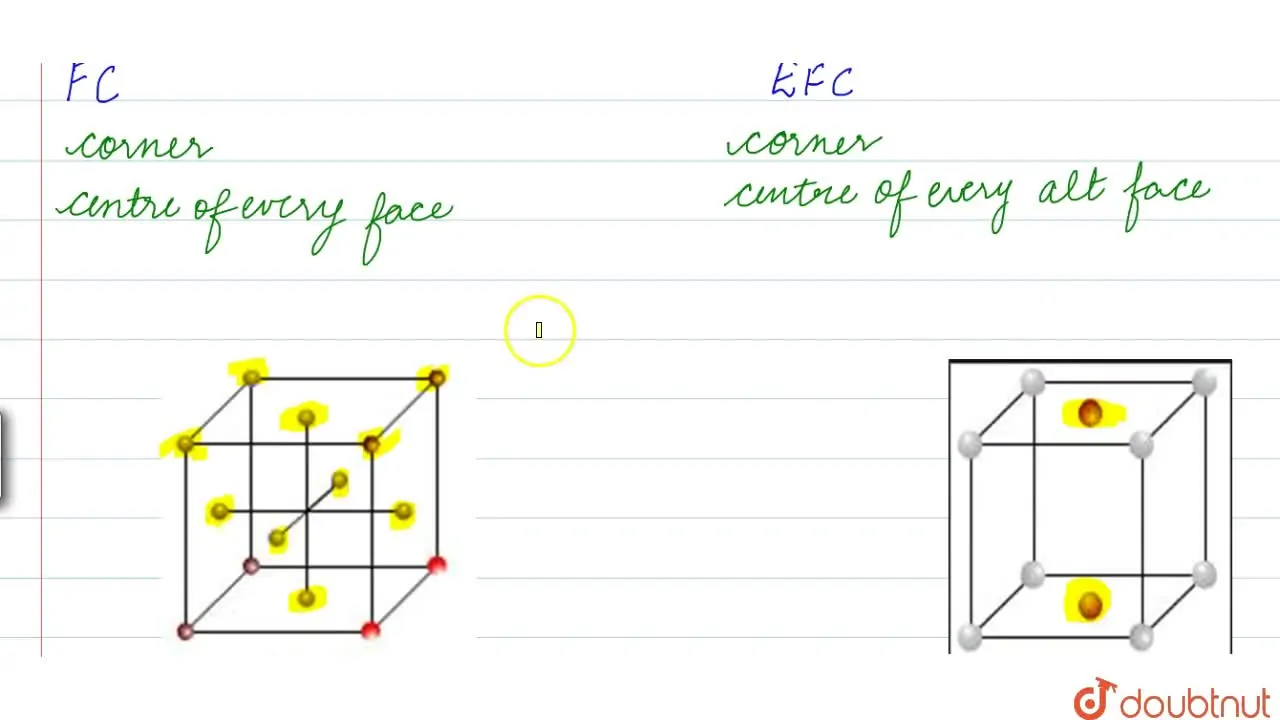 FC
EFC
corner
corner
centre of every face
centre of every alt face
doubtnut